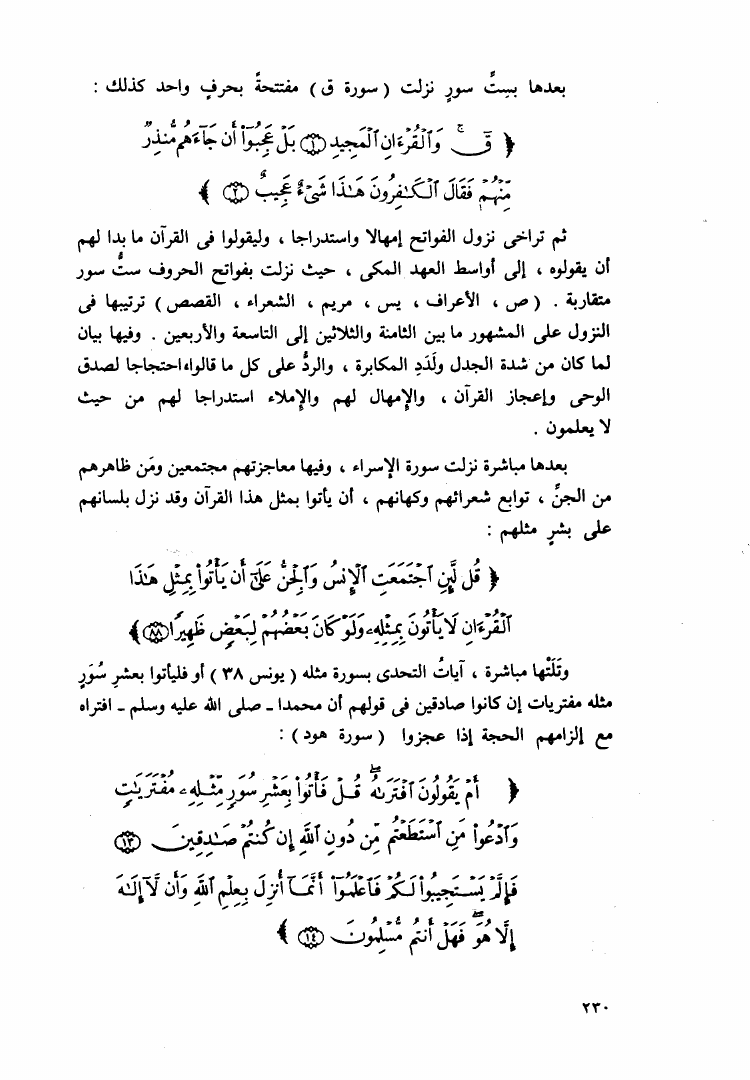 بعدها بسِتِّ سورٍ نزلت ( سورة ق ) مفتتحةً بحرفٍ واحد كذلك :
﴿ قٓ ۚ وَٱلْقُرْءَانِ ٱلْمَجِيدِ ١ بَلْ عَجِبُوٓا۟ أَن جَآءَهُم مُّنذِرٌ
مِّنْهُمْ فَقَالَ ٱلْكَٰفِرُونَ هَٰذَا شَىْءٌ عَجِيبٌ ٢ ﴾
ثم تراخى نزول الفواتح إمهالا واستدراجا ، وليقولوا فى القرآن ما بدا لهم
أن يقولوه ، إلى أواسط العهد المكى ، حيث نزلت بفواتح الحروف ستُّ سور
متقاربة . ( ص ، الأعراف ، يس ، مريم ، الشعراء ، القصص ) ترتيبها فى
النزول على المشهور ما بين الثامنة والثلاثين إلى التاسعة والأربعين . وفيها بيان
لما كان من شدة الجدل ولَدَدِ المكابرة ، والردُّ على كل ما قالوا،احتجاجا لصدق
الوحى وإعجاز القرآن ، والإمهال لهم والإملاء استدراجا لهم من حيث
لا يعلمون .
بعدها مباشرة نزلت سورة الإسراء ، وفيها معاجزتهم مجتمعين ومَن ظاهرهم
من الجنِّ ، توابع شعرائهم وكهانهم ، أن يأتوا بمثل هذا القرآن وقد نزل بلسانهم
على بشرٍ مثلهم :
﴿ قُل لَّئِنِ ٱجْتَمَعَتِ ٱلْإِنسُ وَٱلْجِنُّ عَلَىٰٓ أَن يَأْتُوا۟ بِمِثْلِ هَٰذَا
ٱلْقُرْءَانِ لَا يَأْتُونَ بِمِثْلِهِۦ وَلَوْ كَانَ بَعْضُهُمْ لِبَعْضٍ ظَهِيرًا ٨٨ ﴾
وتَلَتْها مباشرة ، آياتُ التحدى بسورة مثله ( يونس ٣٨ ) أو فليأتوا بعشرِ سُوَرٍ
مثله مفتريات إن كانوا صادقين فى قولهم أن محمدا ـ صلى الله عليه وسلم ـ افتراه
مع إلزامهم الحجة إذا عجزوا ( سورة هود ) :
﴿ أَمْ يَقُولُونَ ٱفْتَرَىٰهُ ۖ قُلْ فَأْتُوا۟ بِعَشْرِ سُوَرٍ مِّثْلِهِۦ مُفْتَرَيَٰتٍ
وَٱدْعُوا۟ مَنِ ٱسْتَطَعْتُم مِّن دُونِ ٱللَّهِ إِن كُنتُمْ صَٰدِقِينَ ١٣
فَإِلَّمْ يَسْتَجِيبُوا۟ لَكُمْ فَٱعْلَمُوٓا۟ أَنَّمَآ أُنزِلَ بِعِلْمِ ٱللَّهِ وَأَن لَّآ إِلَٰهَ
إِلَّا هُوَ ۖ فَهَلْ أَنتُم مُّسْلِمُونَ ١٤ ﴾
٢٣٠